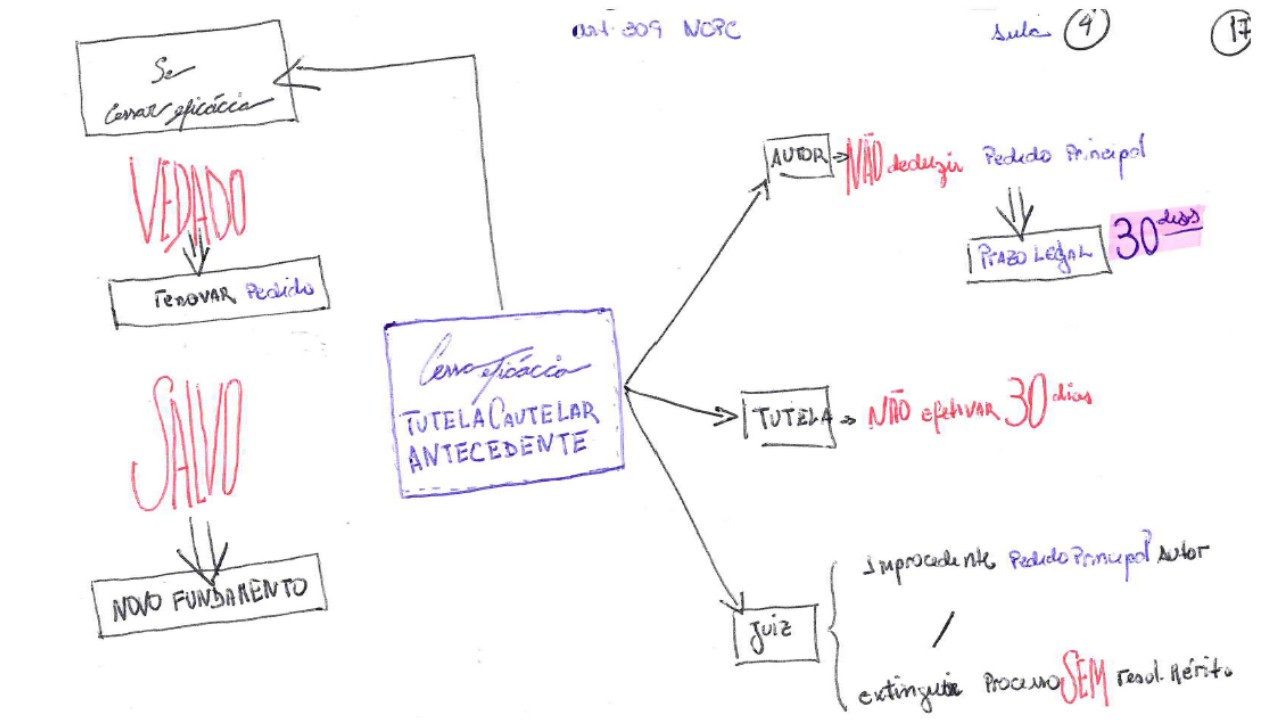 art. 309 NCPC
Aula 4
17
Se
Cessar eficácia
VEDADO
renovar Pedido
SALVO
NOVO FUNDAMENTO
Cessa eficácia
TUTELA CAUTELAR
ANTECEDENTE
AUTOR → NÃO deduzir Pedido Principal
Prazo Legal 30 dias
TUTELA → NÃO efetivar 30 dias
Juiz
Improcedente Pedido Principal Autor
/
extinguir Processo SEM resol. Mérito